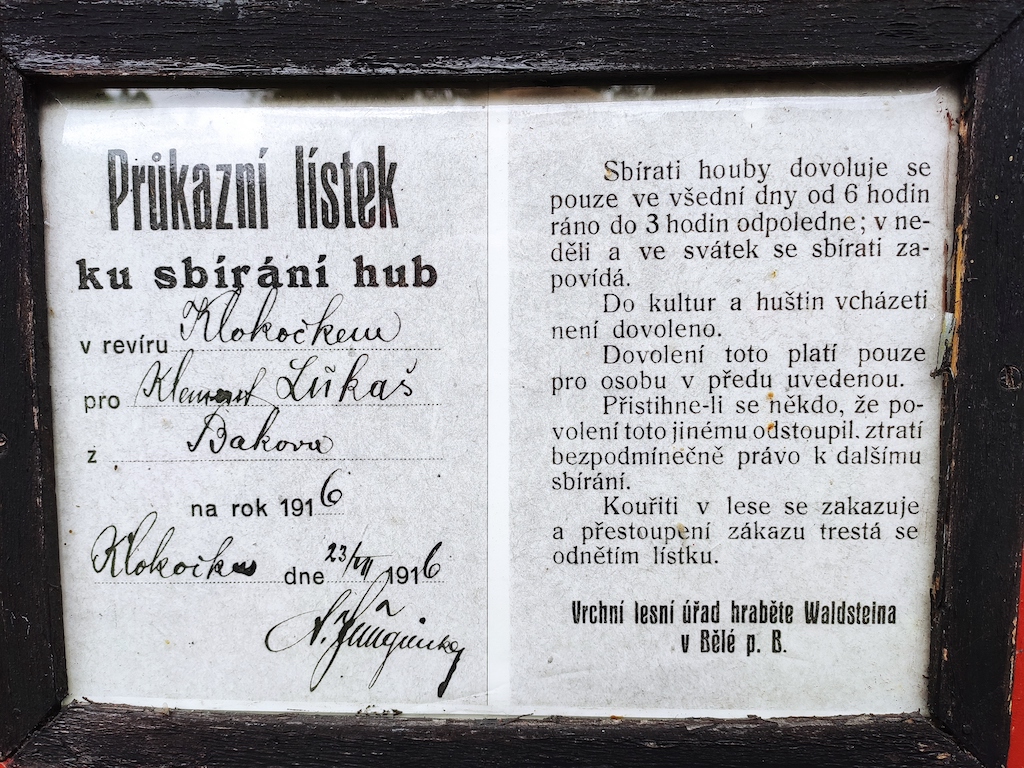 Průkazní lístek
ku sbírání hub
v revíru Klokočkem
pro Klement Lukaš
z Bakova
na rok 1916
Klokočka dne 23/VII 1916
Sbírati houby dovoluje se
pouze ve všední dny od 6 hodin
ráno do 3 hodin odpoledne; v ne-
děli a ve svátek se sbírati za-
povídá.
Do kultur a huštin vcházeti
není dovoleno.
Dovolení toto platí pouze
pro osobu v předu uvedenou.
Přistihne-li se někdo, že po-
volení toto jinému odstoupil. ztratí
bezpodmínečně právo k dalšímu
sbírání.
Kouřiti v lese se zakazuje
a přestoupení zákazu trestá se
odnětím lístku.
Vrchní lesní úřad hraběte Waldsteina
v Bělé p. B.